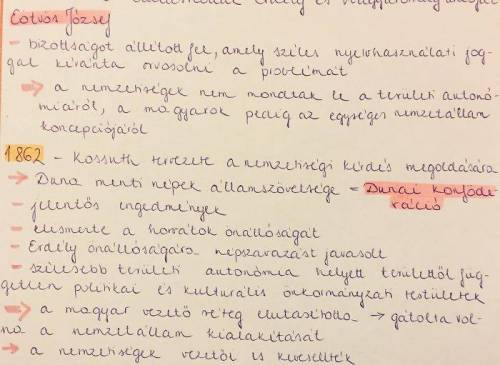 Eötvös József
- bizottságot állított fel, amely széles nyelvhasználati jog-
gal kívánta orvosolni a problémát
→ a nemzetiségek nem mondtak le a területi autonó-
miáról, a magyarok pedig az egységes nemzetállam
koncepciójáról
1862 - Kossuth tervezete a nemzetiségi kérdés megoldására
→ Duna menti népek államszövetsége = Dunai konföde-
ráció
- jelentős engedmények
- elismerte a horvátok önállóságát
- Erdély önállóságára népszavazást javasolt
- szélesebb területi autonómia helyett területtől füg-
getlen politikai és kulturális önkormányzati testületek
→ a magyar vezető réteg elutasította → gátolta vol-
na a nemzetállam kialakítását
→ a nemzetiségek vezetői is kevesellték